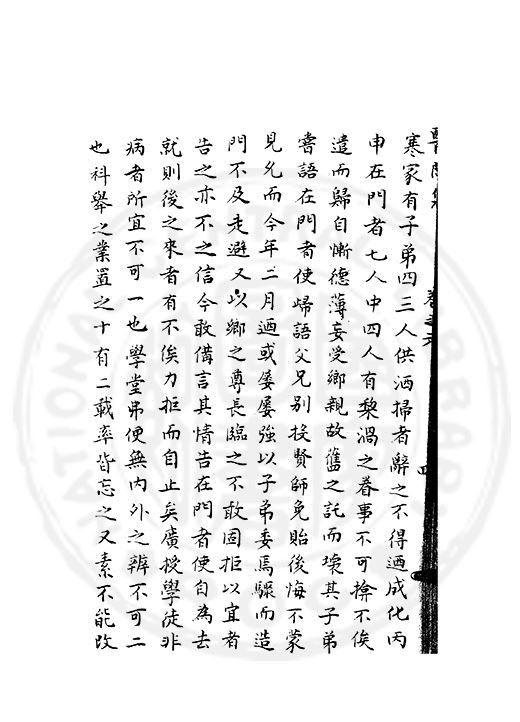 寒家有子弟四三人供洒掃者辭之不得廼成化丙
申在門者七人中四人有梨渦之眷事不可揜不俟
遣而歸自慚德薄妄受鄉親故舊之託而壞其子弟
嘗語在門者使歸語父兄別投賢師免貽後悔不蒙
見允而今年二月廼或屡屡強以子弟委焉驟而造
門不及走避又以鄉之尊長臨之不敢固拒以宜者
告之亦不之信今敢備言其情告在門者使自為去
就則後之來者有不俟力拒而自止矣廣授學徒非
病者所宜不可一也學堂弗便無內外之辨不可二
也科舉之業置之十有二載率皆忘之又素不能改